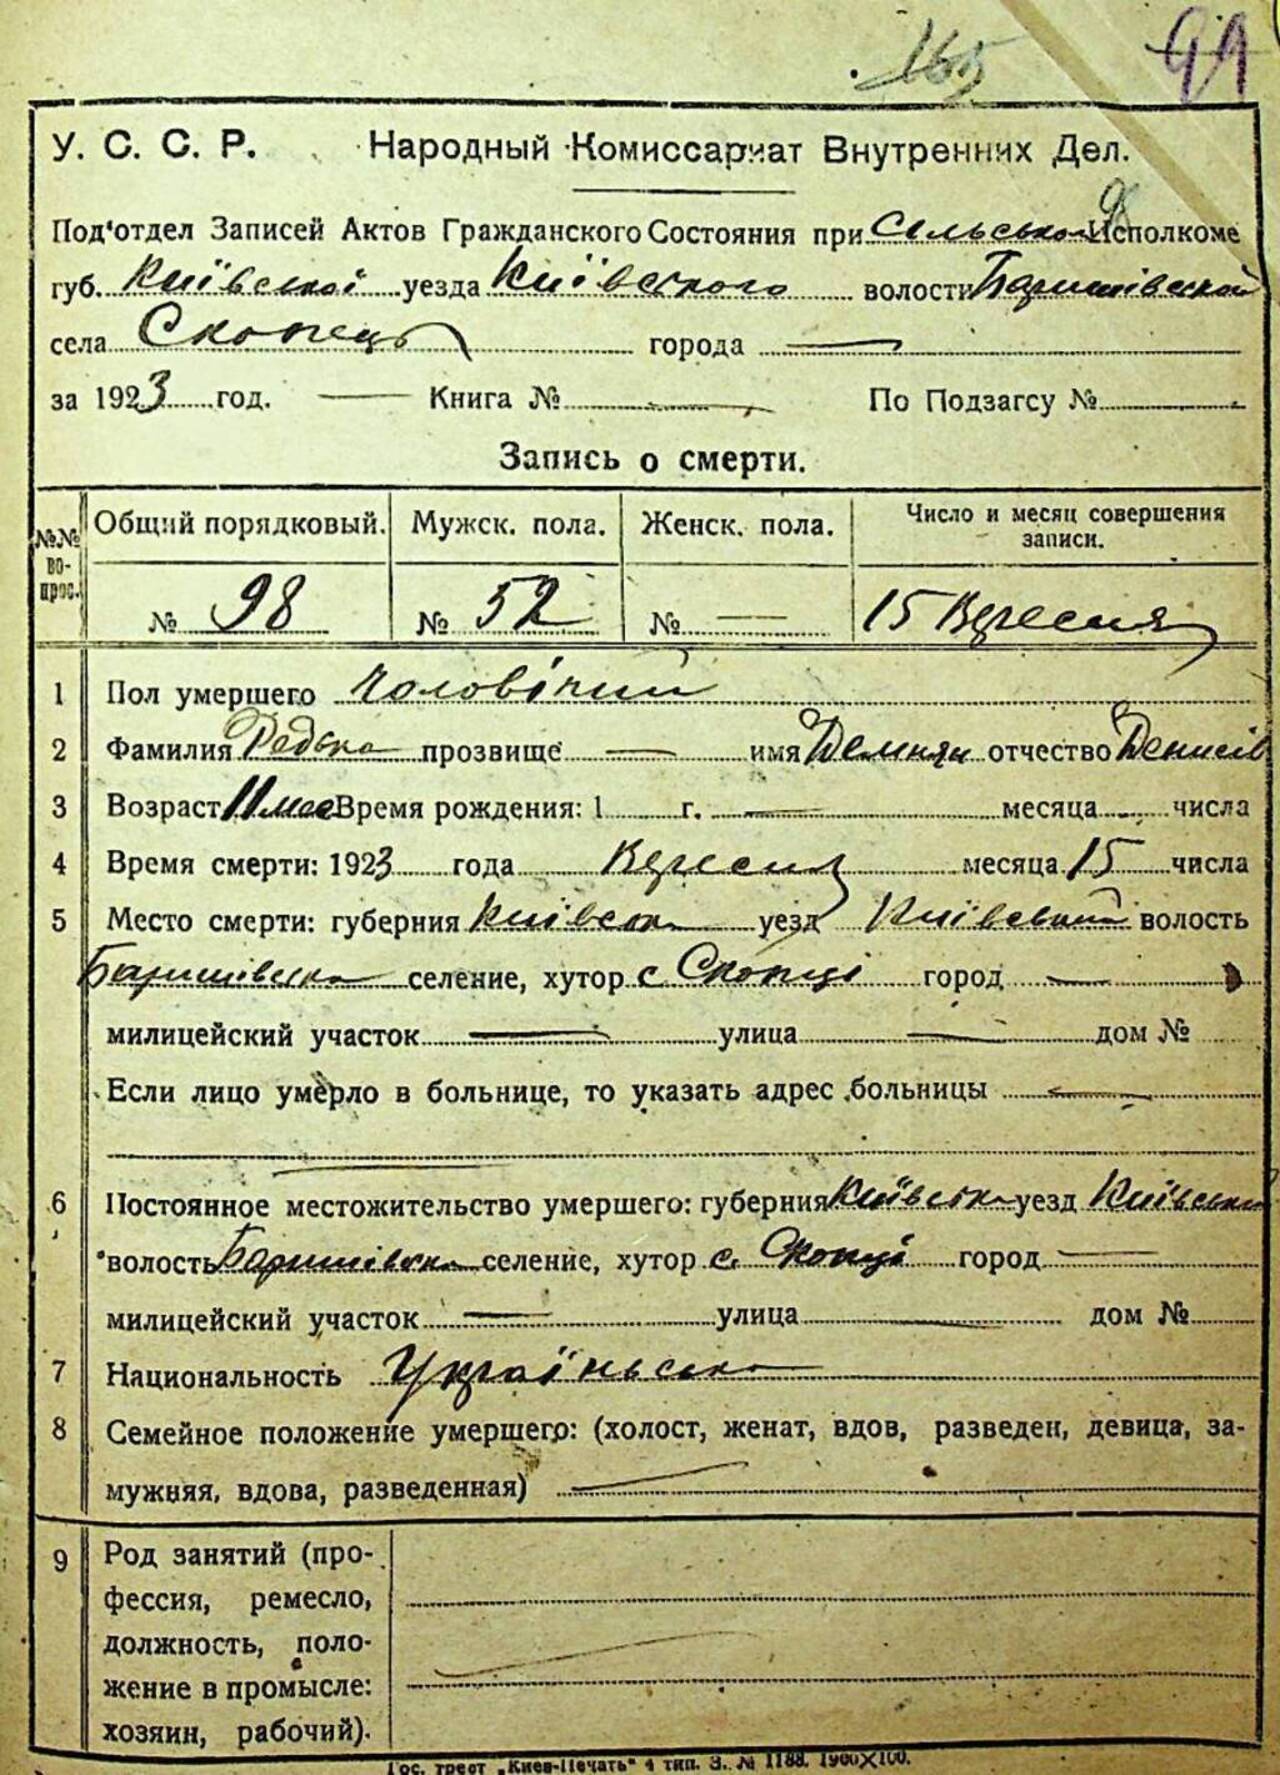 165 91
У. С. С. Р. Народный Комиссариат Внутренних Дел.
Под'отдел Записей Актов Гражданского Состояния при Сельськом Исполкоме
губ. Київської уезда Київського волости Баришівської
села Скопець города —
за 1923 год. — Книга № — По Подзагсу №
Запись о смерти.
№№ вопрос. Общий порядковый. Мужск. пола. Женск. пола. Число и месяц совершения записи.
№ 98 № 52 № — 15 Вересня
1 Пол умершего чоловічий
2 Фамилия Редька прозвище — имя Демнян отчество Денисів
3 Возраст 11 мес Время рождения: 1 г. — месяца числа
4 Время смерти: 1923 года Вересня месяца 15 числа
5 Место смерти: губерния Київська уезд Київський волость
Баришівська селение, хутор с Скопці город —
милицейский участок — улица — дом №
Если лицо умерло в больнице, то указать адрес больницы —
6 Постоянное местожительство умершего: губерния Київська уезд Київський
волость Баришівська селение, хутор с. Скопці город —
милицейский участок — улица — дом №
7 Национальность Українська
8 Семейное положение умершего: (холост, женат, вдов, разведен, девица, за-
мужняя, вдова, разведенная) —
9 Род занятий (про-
фессия, ремесло,
должность, поло-
жение в промысле:
хозяин, рабочий).
Гос. трест „Киев-Печать" 4 тип. З. № 1188. 1900X100.